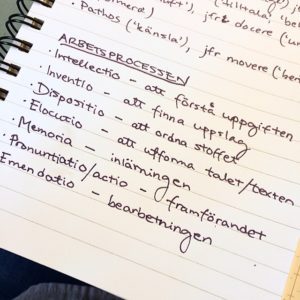 ('tilltala', 'be
· Pathos ('känsla'), jfr movere ('be
ARBETSPROCESSEN
· Intellectio - att förstå uppgiften
· Inventio - att finna uppslag
· Dispositio - att ordna stoffet
· Elocutio - att utforma talet/texten
· Memoria - inlärningen
· Pronuntiatio/actio - framförandet
Emendatio - bearbetningen